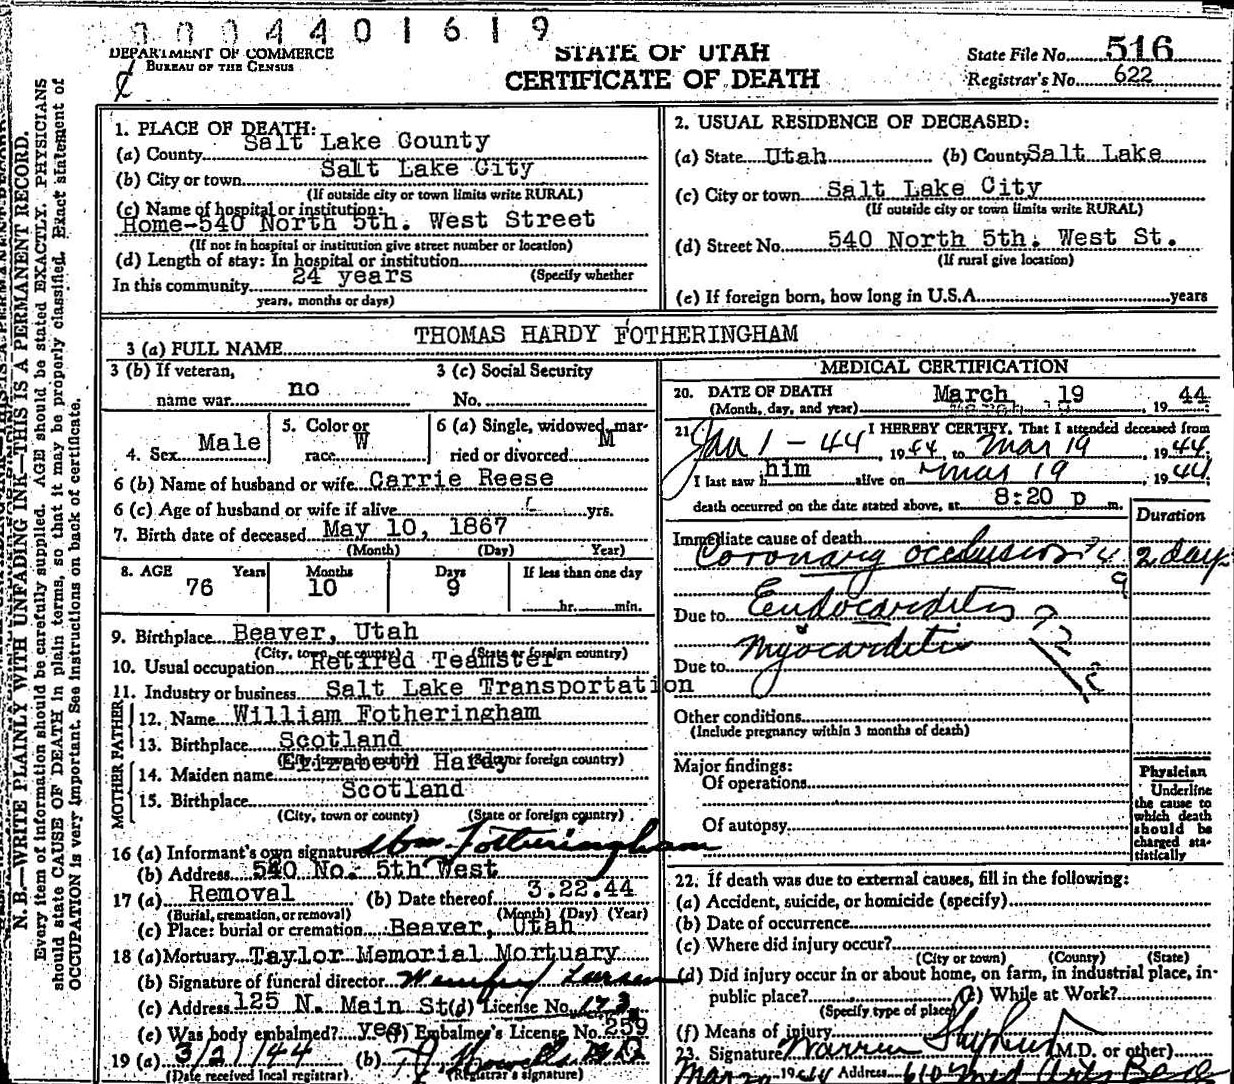 0004401619
DEPARTMENT OF COMMERCE
BUREAU OF THE CENSUS
STATE OF UTAH
CERTIFICATE OF DEATH
State File No. 516
Registrar's No. 622
N. B.—WRITE PLAINLY WITH UNFADING INK—THIS IS A PERMANENT RECORD.
Every item of information should be carefully supplied. AGE should be stated EXACTLY. PHYSICIANS
should state CAUSE OF DEATH in plain terms, so that it may be properly classified. Exact statement of
OCCUPATION is very important. See instructions on back of certificate.
1. PLACE OF DEATH:
(a) County Salt Lake County
(b) City or town Salt Lake City
(If outside city or town limits write RURAL)
(c) Name of hospital or institution:
Home-540 North 5th. West Street
(If not in hospital or institution give street number or location)
(d) Length of stay: In hospital or institution
(Specify whether
In this community 24 years
years, months or days)
2. USUAL RESIDENCE OF DECEASED:
(a) State Utah (b) County Salt Lake
(c) City or town Salt Lake City
(If outside city or town limits write RURAL)
(d) Street No. 540 North 5th. West St.
(If rural give location)
(e) If foreign born, how long in U.S.A. years
3 (a) FULL NAME THOMAS HARDY FOTHERINGHAM
3 (b) If veteran,
name war no
3 (c) Social Security
No.
4. Sex Male
5. Color or
race W
6 (a) Single, widowed, mar-
ried or divorced M
6 (b) Name of husband or wife Carrie Reese
6 (c) Age of husband or wife if alive yrs.
7. Birth date of deceased May 10, 1867
(Month) (Day) Year)
8. AGE Years 76 Months 10 Days 9 If less than one day
hr. min.
9. Birthplace Beaver, Utah
(City, town, or county) (State or foreign country)
10. Usual occupation Retired Teamster
11. Industry or business Salt Lake Transportation
FATHER
12. Name William Fotheringham
13. Birthplace Scotland
(City, town or county) (State or foreign country)
MOTHER
14. Maiden name Elizabeth Hardy
15. Birthplace Scotland
(City, town or county) (State or foreign country)
16 (a) Informant's own signature Wm. Fotheringham
(b) Address 540 No. 5th West
17 (a) Removal (b) Date thereof 3.22.44
(Burial, cremation, or removal) (Month) (Day) (Year)
(c) Place: burial or cremation Beaver, Utah
18 (a) Mortuary Taylor Memorial Mortuary
(b) Signature of funeral director
(c) Address 125 N. Main St (d) License No. 173
(e) Was body embalmed? yes (f) Embalmer's License No. 259
19 (a) 3/21/44 (b)
(Date received local registrar) (Registrar's signature)
MEDICAL CERTIFICATION
20. DATE OF DEATH March 19
(Month, day, and year) 19 44
21. I HEREBY CERTIFY, That I attended deceased from
Jan 1 - 44, 1944, to Mar 19, 1944
I last saw him alive on Mar 19, 1944
death occurred on the date stated above, at 8:20 p m.
Duration
Immediate cause of death
Coronary occlusion 94 2 days
Due to Endocarditis
Due to Myocarditis
Other conditions
(Include pregnancy within 3 months of death)
Major findings:
Of operations
Of autopsy
Physician
Underline
the cause to
which death
should be
charged sta-
tistically
22. If death was due to external causes, fill in the following:
(a) Accident, suicide, or homicide (specify)
(b) Date of occurrence
(c) Where did injury occur?
(City or town) (County) (State)
(d) Did injury occur in or about home, on farm, in industrial place, in-
public place? (e) While at Work?
(Specify type of place)
(f) Means of injury
23. Signature Warren (M.D. or other)
Mar 20 1944 Address 610 Med Arts